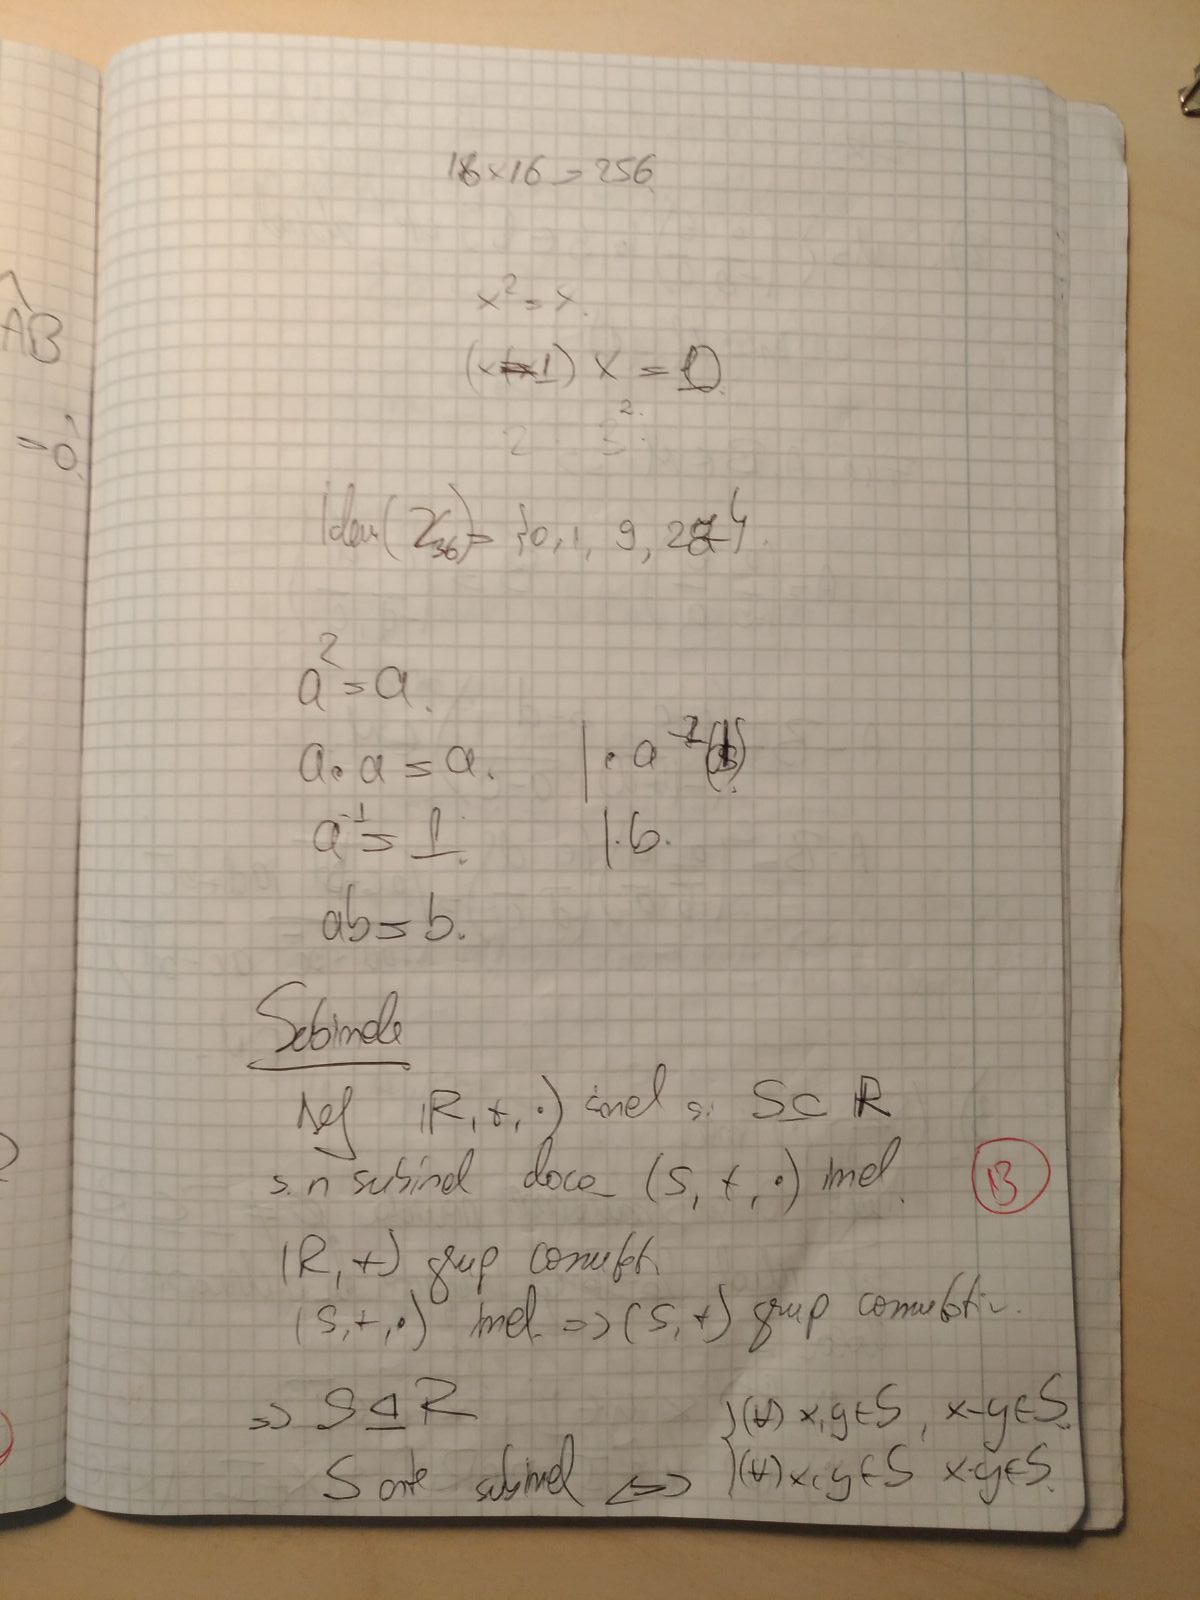 AB
= 0
16 × 16 = 256
x² = x.
(x-1) x = 0.
2 3²
Idem(Z₃₆) = {0, 1, 9, 28}.
a² = a.
a · a = a. | · a⁻¹
a⁻¹ = 1. | · b.
ab = b.
Subinele
Def (R, +, ·) inel și S ⊆ R
s.n subinel daca (S, +, ·) inel.
(R, +) grup comutativ.
(S, +, ·) inel => (S, +) grup comutativ.
=> S ⊴ R } (∀) x, y ∈ S, x-y ∈ S.
S este subinel <=> } (∀) x, y ∈ S x·y ∈ S.
13